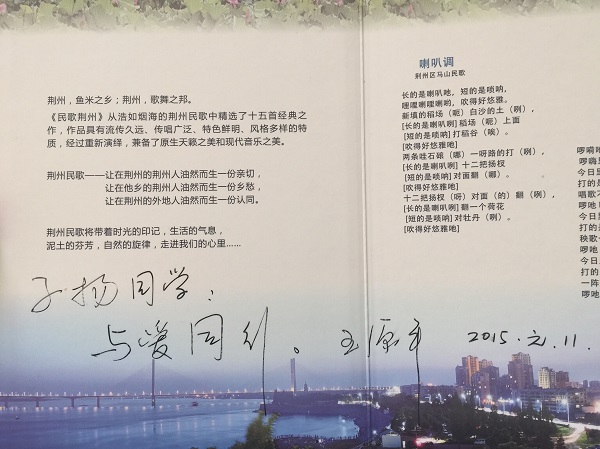 荆州，鱼米之乡；荆州，歌舞之邦。
《民歌荆州》从浩如烟海的荆州民歌中精选了十五首经典之
作，作品具有流传久远、传唱广泛、特色鲜明、风格多样的特
质，经过重新演绎，兼备了原生天籁之美和现代音乐之美。
荆州民歌——让在荆州的荆州人油然而生一份亲切，
让在他乡的荆州人油然而生一份乡愁，
让在荆州的外地人油然而生一份认同。
荆州民歌将带着时光的印记，生活的气息，
泥土的芬芳，自然的旋律，走进我们的心里......
子扬同学：
与爱同行。
2015.元.11.
喇叭调
荆州区马山民歌
长的是喇叭吔，短的是唢呐，
哩哩喇哩喇哟，吹得好悠雅。
新填的稻场（呃）白沙的土（咧），
[长的是喇叭咧] 稻场（呃）上面
[短的是唢呐] 打稻谷（唉）。
[吹得好悠雅吔]
两条哇石磙（哪）一呀路的打（咧），
[长的是喇叭咧] 十二把扬杈
[短的是唢呐] 对面翻（哪）。
[吹得好悠雅吔]
十二把扬杈（呀）对面（的）翻（咧），
[长的是喇叭咧] 翻一个荷花
[短的是唢呐] 对牡丹（咧）。
[吹得好悠雅吔]
今日
打的是
唱歌不
啰吔
打的是
秧歌
今日
打的是
一阵
啰吔